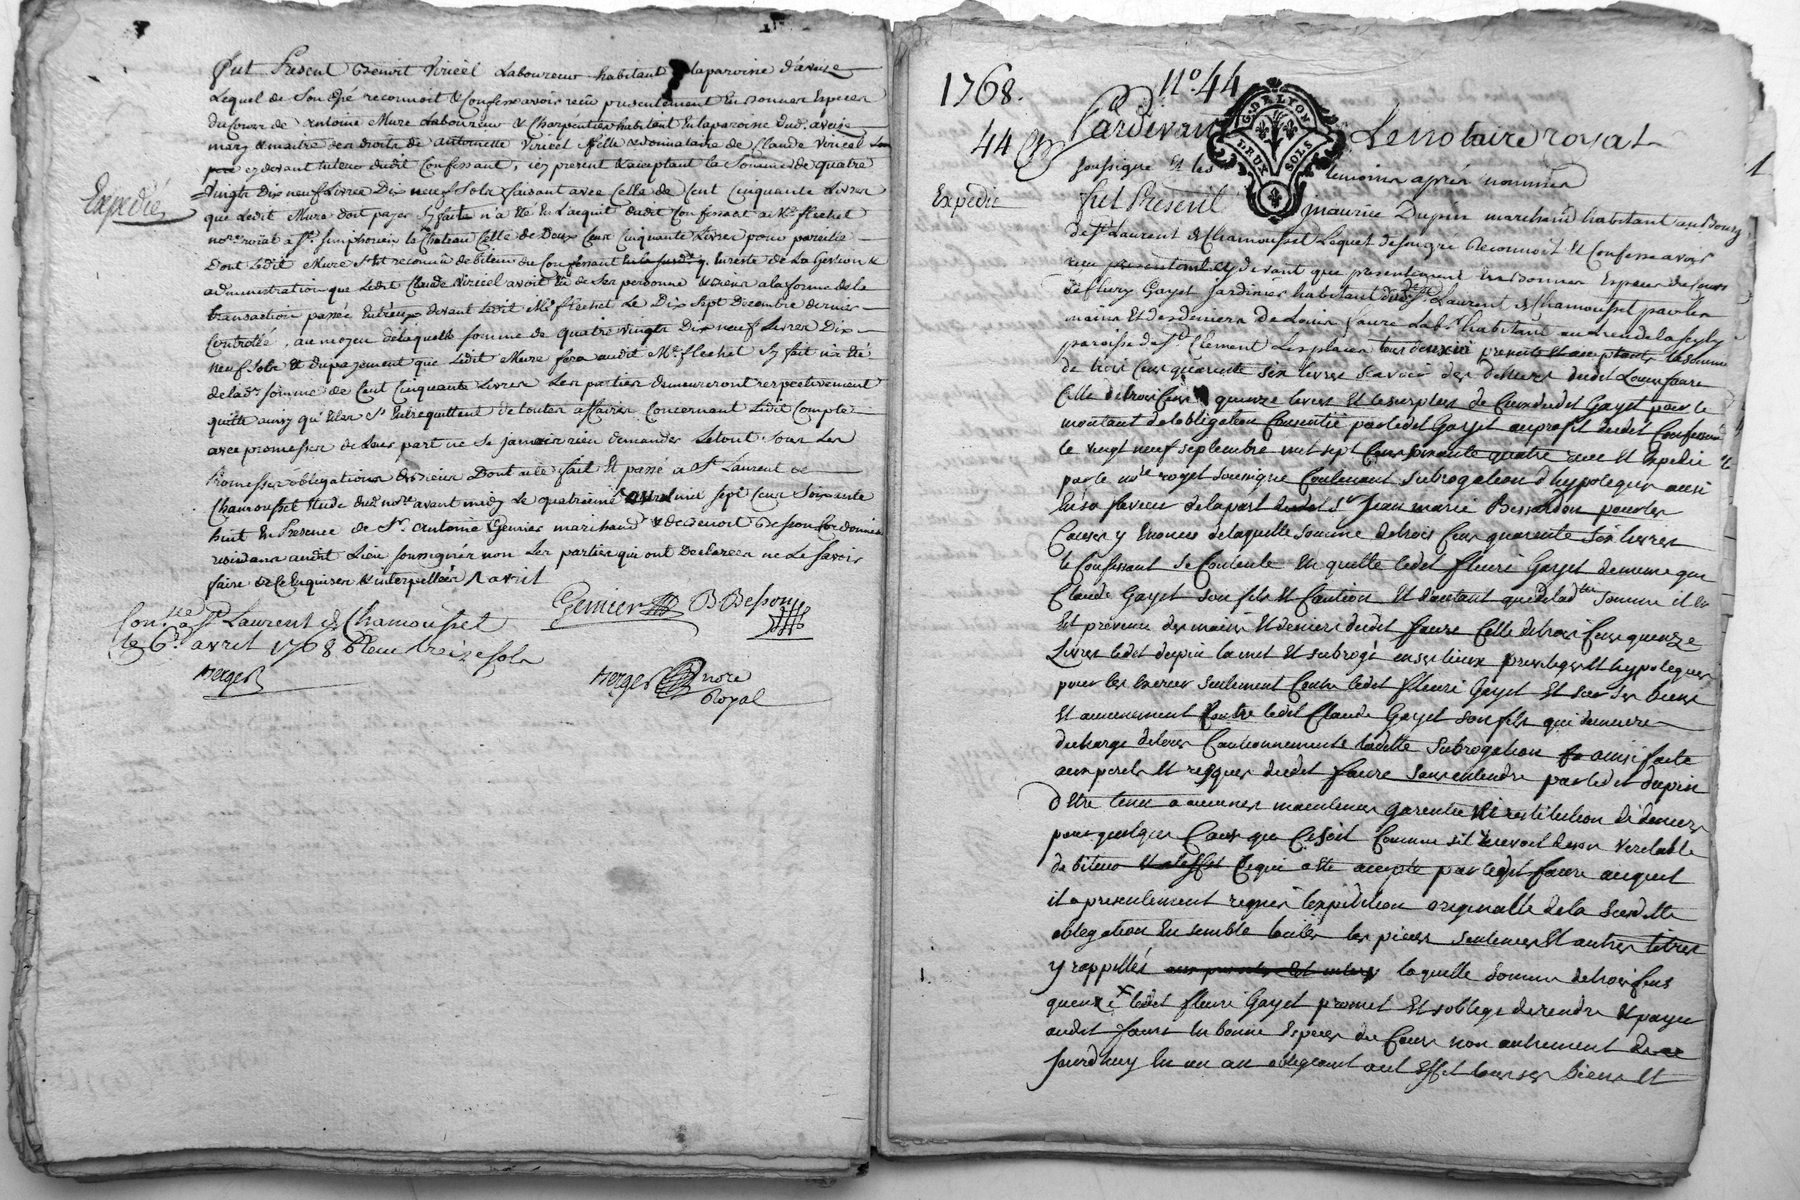 fut Present Benoit Viricel Laboureur habitant laparoisse d'aveise
Lequel de Son gré reconnoit & Confesse avoir reçu presentement En bonnes Especes
du Cours de Antoine Mure Laboureur & Charpentier habitant En laparoisse dud. aveize
mary & maitre des droits de antoinette Viricel fille & donnataire de Claude Viricel Son
pere cy devant tuteur dudit Confessant, icy present & acceptant la Somme de quatre
Vingts Dix neuf Livres Dix neuf Sols faisant avec Celle de Cent Cinquante Livres
Expedié
que Ledit Mure doit payer Sy fait n'a été En L'acquit dudit Confessant a Me. flechet
nore. roïal a St. Simphorien le Chateau Celle de Deux Cent Cinquante Livres pour pareille
Dont Ledit Mure S'est reconnu debiteur du Confessant En reste de La Gestion &
administration que Ledit Claude Viricel avoit Eu de Ses personne & biens a la forme de la
transaction passée Entreux devant Ledit Me. flechet Le Dix Sept Decembre dernier
Controllé, au moyen delaquelle Somme de quatre vingts Dix neuf Livres Dix
neuf Sols & du payement que Ledit Mure fera audit Me. flechet Sy fait n'a été
de lad. Somme de Cent Cinquante Livres Les parties demeureront respectivement
quitte ainsy qu'elles S'Entrequittent de toutes affaires Concernant Ledit Compte
avec promesses de Leurs part ne Se jamais rien demander Letout Sous Les
Promesses obligations Dont acte fait Et passé a St. Laurent de
Chamousset Etude dud. nore. avant midy Le quatrieme avril mil Sept Cent Soixante
huit En Presence de Sr. Antoine Grenier marchand & de Benoit Besson Cordonnier
residans audit Lieu Soussignés non Les parties qui ont Declarées ne Le Savoir
faire de Ce Enquises & interpellées 1 avril
Grenier B Besson
Con. lé a St. Laurent de Chamousset
le 6. avril 1768 Reçu treize sols
Berger
Berger nore
Royal
1768.
No. 44
G. DE LYON
DEUX SOLS
44
Pardevant Le notaire royal
1
soussigné Et les temoins aprés nommés
Expedié
fut Present Maurice Dupin marchand habitant au Bourg
de St. Laurent de Chamousset Lequel de son gre Reconnoit Et Confesse avoir
reçu presentement En bonnes Especes du Cours
de fleury Gayet Jardinier habitant audit St. Laurent de Chamousset par les
mains Et des deniers De Louis faure Labr. habitant au Lieu de la
paroisse de St. Clement Les places presents Et acceptants la somme
de trois Cens quarente six livres scavoir des deniers dudit Louis faure
Celle de trois Cens quinze livres Et le surplus de Ceux dudit Gayet pour le
montant de lobligation Consentie par ledit Gayet au profit dudit Confessant
le vingt neuf septembre mil sept Cens soixante quatre recue Et Expedié
par le nre. royal soussigné Contenant subrogation d'hypoteques aussi
En sa faveur de la part Sr Jean marie Bissardon pour les
Causes y Enoncés de laquelle somme de trois Cens quarente six livres
le Confessant se Contente En quitte ledit fleuri Gayet de meme que
Claude Gayet son fils Et Caution Et d'autant que de ladte somme il en
Est provenu des mains Et deniers dudit faure Celle de trois Cens quinze
Livres ledit dupin la met Et subroge en ses lieux privileges Et hypoteques
pour les Exercer seulement Contre ledit fleuri Gayet Et sur ses biens
Et aucunement Contre ledit Claude Gayet son fils qui demeure
decharge de leurs Cautionnements ladite subrogation ainsi faite
aux perils Et risques dudit faure sans entendre par ledit dupin
d'Etre tenu a aucunes maintenue garentie ni restitution de deniers
pour quelques Cause que Ce soit Comme s'il recevoit de son veritable
debiteur Ce qui a ete accepté par ledit faure auquel
il a presentement remis l'expedition originalle de la susditte
obligation Ensemble toutes les pieces sentences Et autres titres
y rappellés laquelle somme de trois Cens
quenze # ledit fleuri Gayet promet Et s'oblige de rendre Et payer
audit faure En bonne Especes du Cours non autrement de ce
jourdhuy En un an obligeant a cet Effet tous ses biens Et